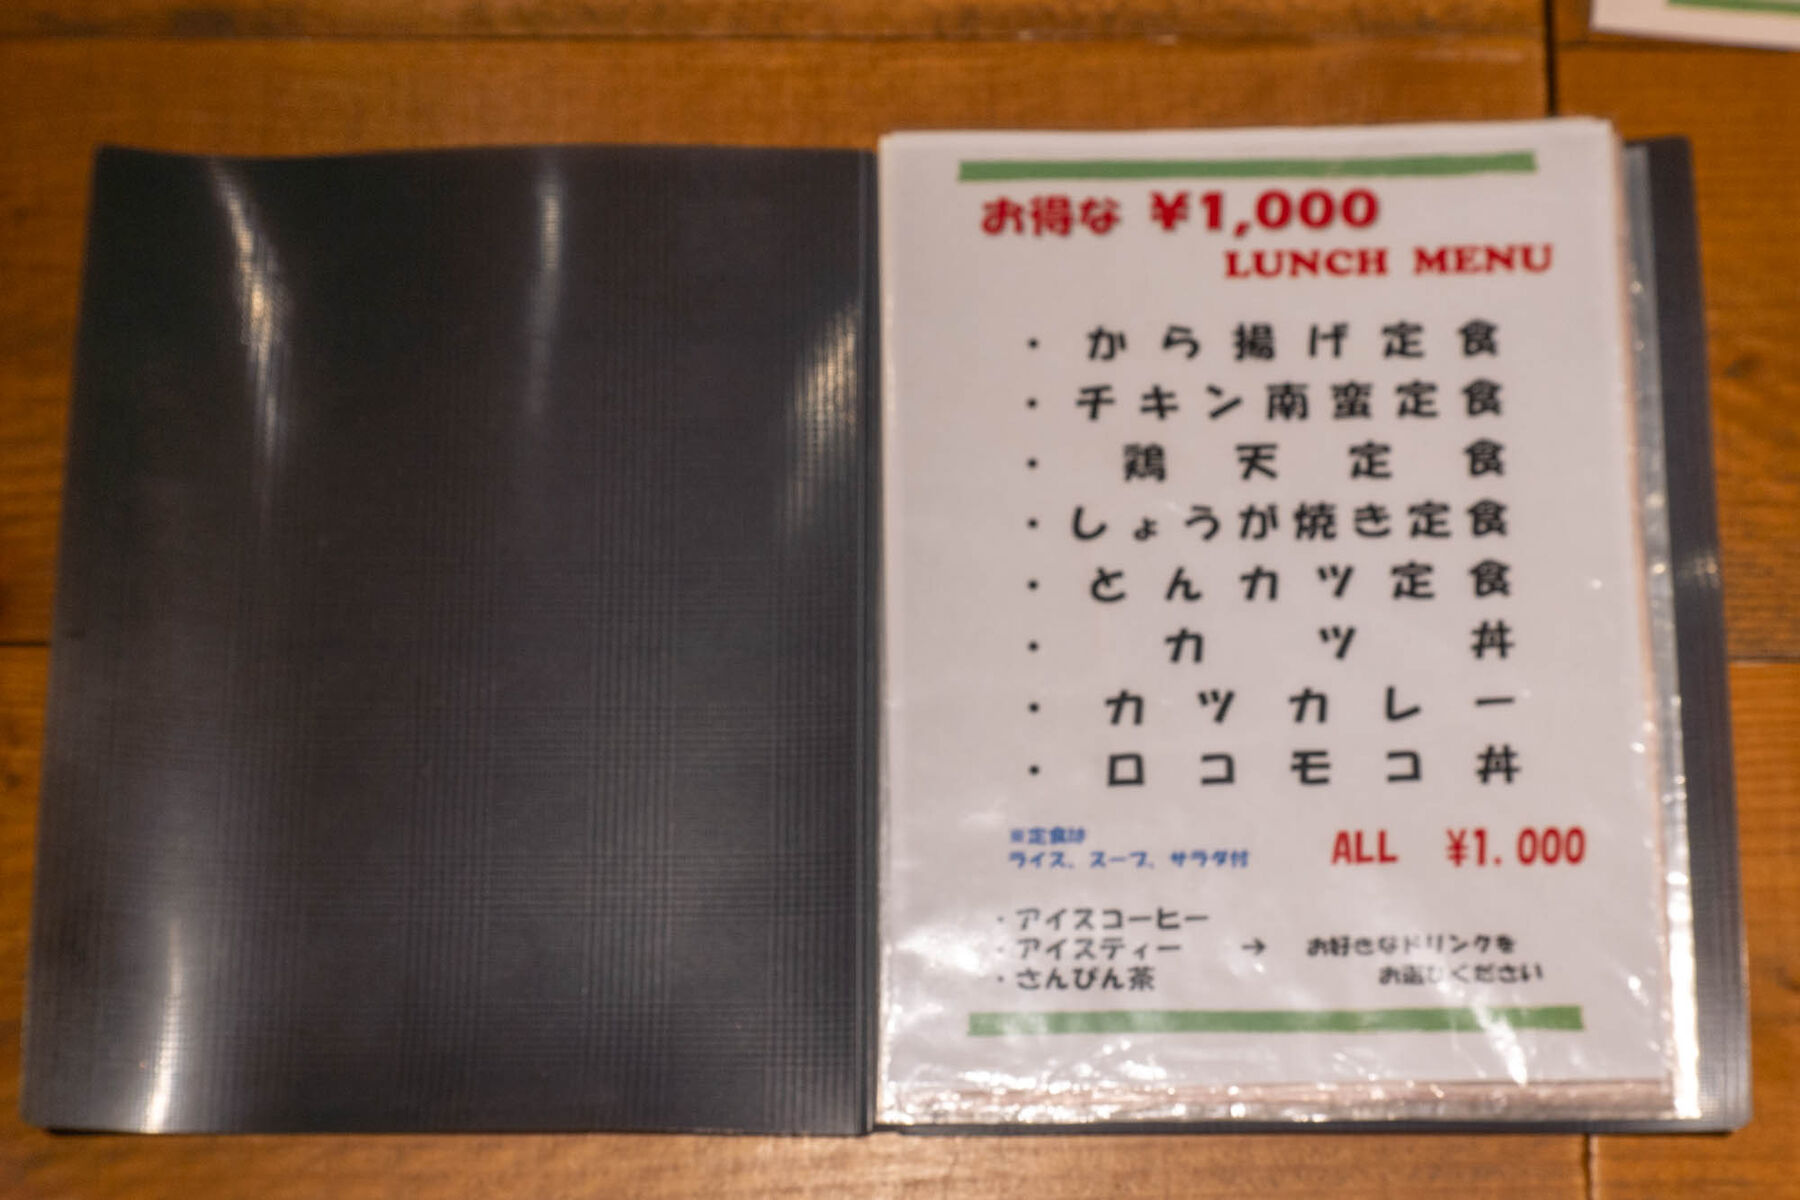 お得な ¥1,000
LUNCH MENU
・から揚げ定食
・チキン南蛮定食
・鶏天定食
・しょうが焼き定食
・とんカツ定食
・カツ丼
・カツカレー
・ロコモコ丼
※定食は
ライス、スープ、サラダ付
ALL ¥1.000
・アイスコーヒー
・アイスティー → お好きなドリンクを
・さんぴん茶 お選びください